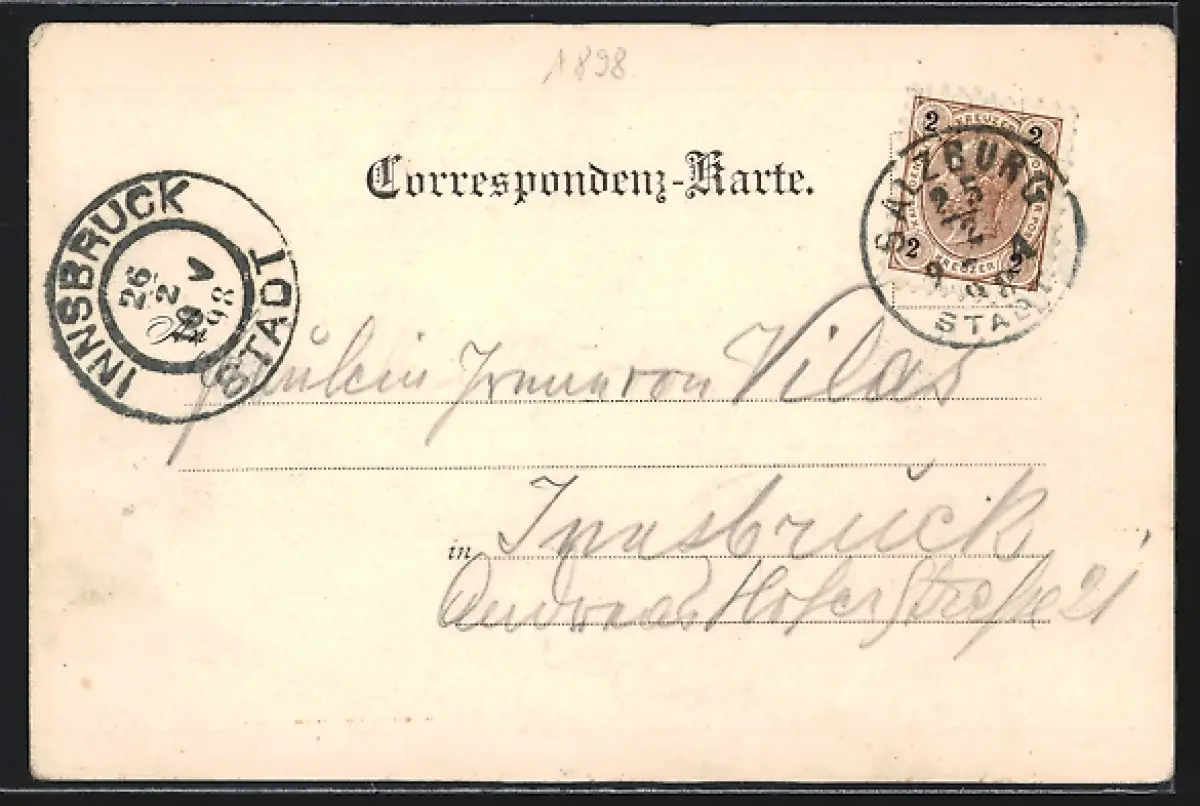 1898
Correspondenz-Karte.
2 KREUZER 2
2 KREUZER 2
SALZBURG
25/2
98
STADT
INNSBRUCK
26
2
98
STADT
Fräulein Irene von Vilas
in Innsbruck
Andreas Hoferstraße 21